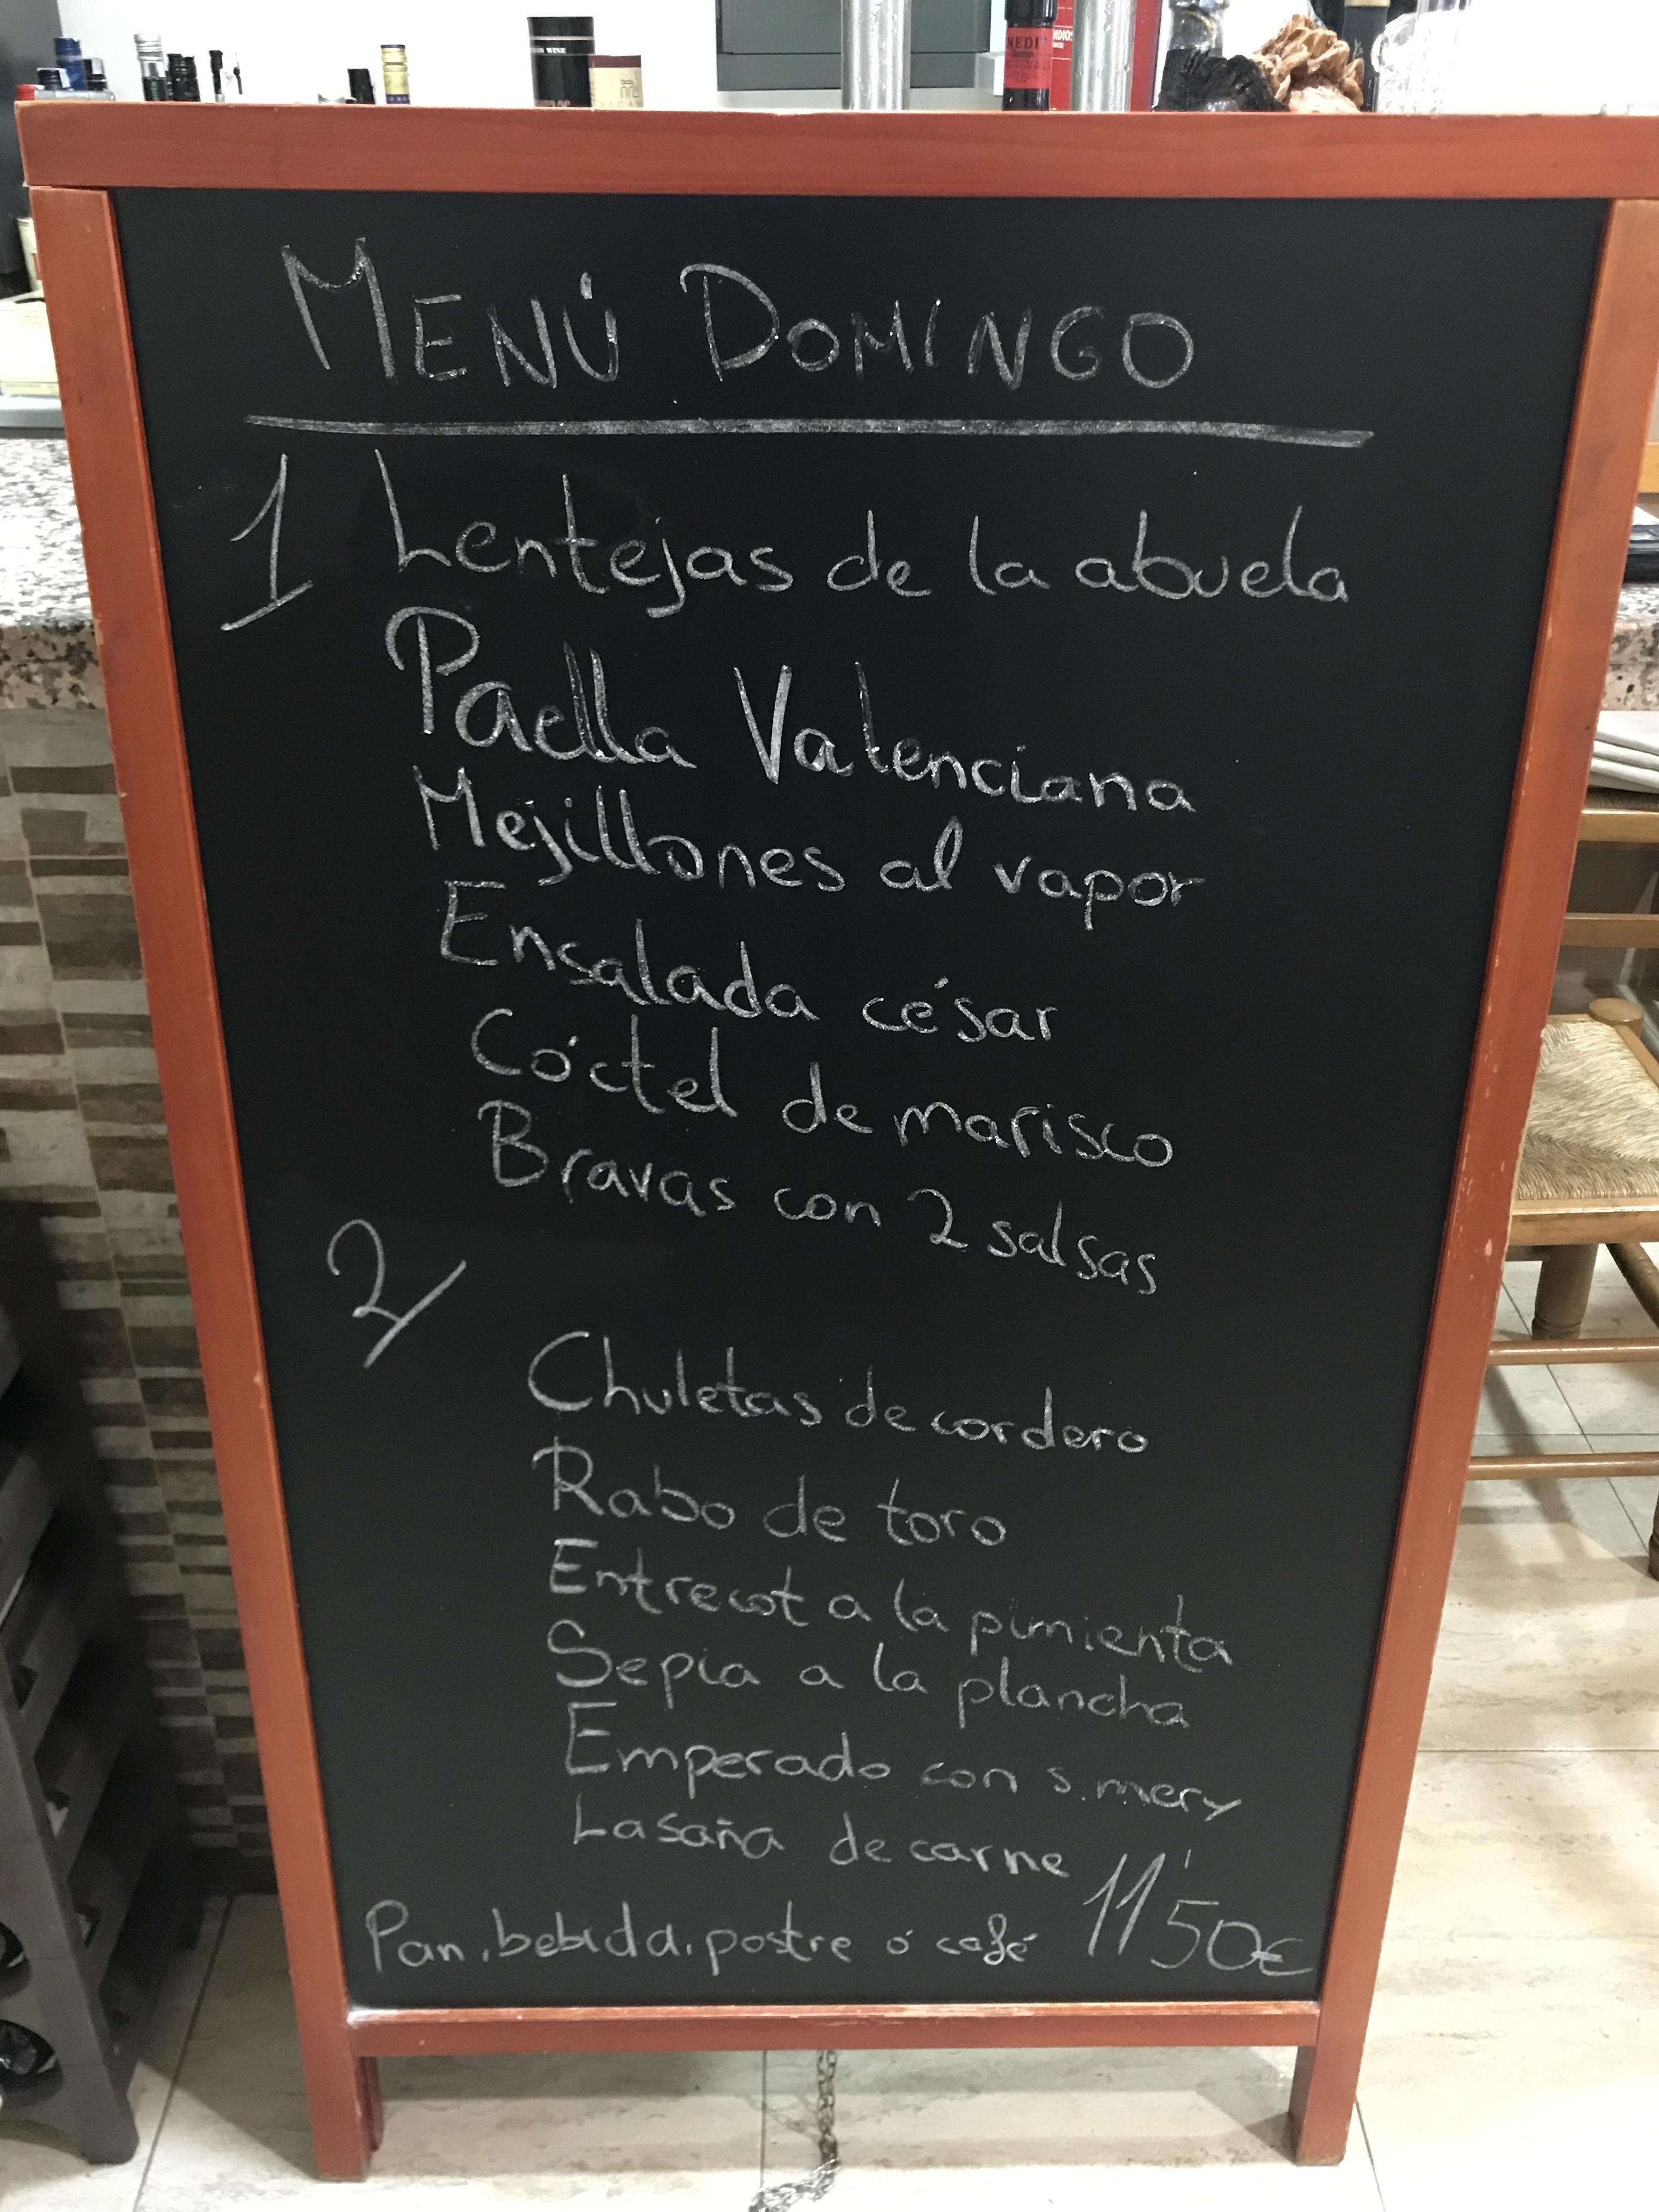 WINE
NEDI
MENÚ DOMINGO
1 Lentejas de la abuela
Paella Valenciana
Mejillones al vapor
Ensalada césar
Cóctel de marisco
Bravas con 2 salsas
2/
Chuletas de cordero
Rabo de toro
Entrecot a la pimienta
Sepia a la plancha
Emperado con s.mery
Lasaña de carne
Pan, bebida, postre ó café 11'50€